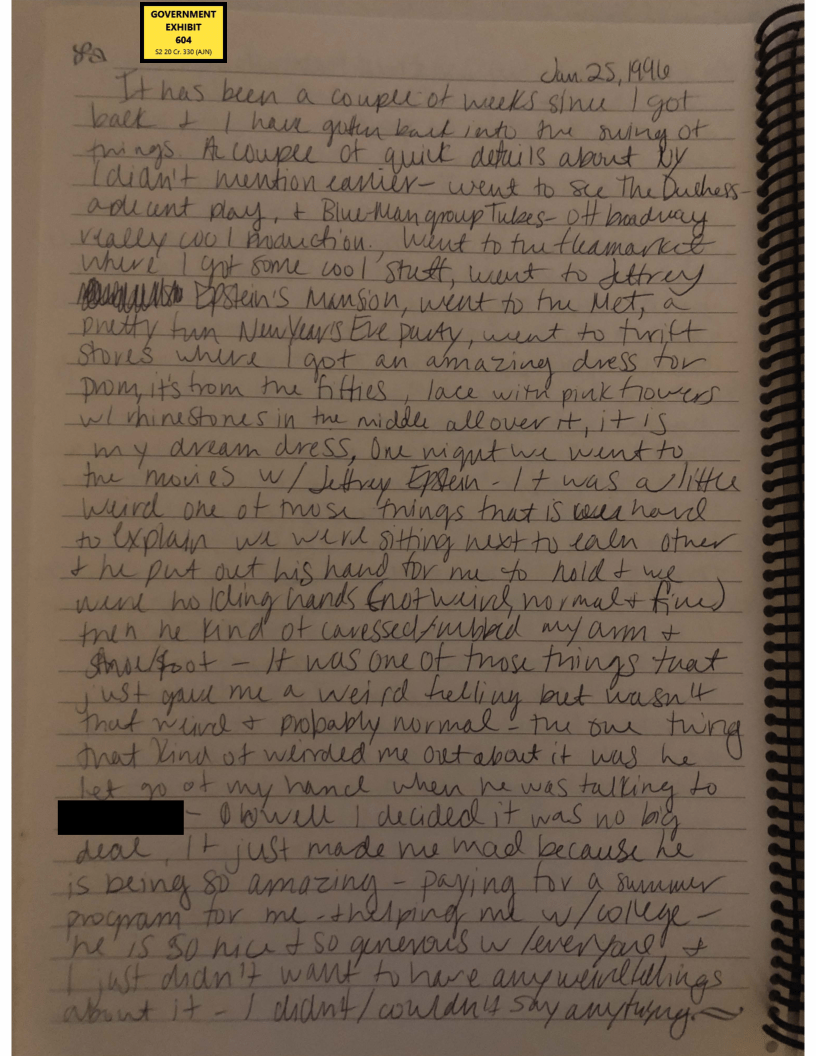 GOVERNMENT
EXHIBIT
604
S2 20 Cr. 330 (AJN)
Jan. 25, 1996
It has been a couple of weeks since I got
back & I have gotten back into the swing of
things. A couple of quick details about NY
I didn't mention earlier - went to see The Duchess -
a decent play, & Blue Man group Tubes - off broadway
really cool production. Went to the fleamarket
where I got some cool stuff, went to Jeffrey
Epstein's Mansion, went to the Met, a
pretty fun New Year's Eve party, went to thrift
stores where I got an amazing dress for
prom, it's from the fifties, lace with pink flowers
w/ rhinestones in the middle all over it, it is
my dream dress. One night we went to
the movies w/ Jeffrey Epstein - It was a little
weird one of those things that is hard
to explain we were sitting next to each other
& he put out his hand for me to hold & we
were holding hands (not weird, normal & fine)
then he kind of caressed/rubbed my arm &
shoe/foot - It was one of those things that
just gave me a weird felling but wasn't
that weird & probably normal - the one thing
that kind of weirded me out about it was he
let go of my hand when he was talking to
- Oh well I decided it was no big
deal. It just made me mad because he
is being so amazing - paying for a summer
program for me - & helping me w/ college -
he is so nice & so generous w/ everyone &
I just didn't want to have any weird fellings
about it - I didn't/couldn't say anything.